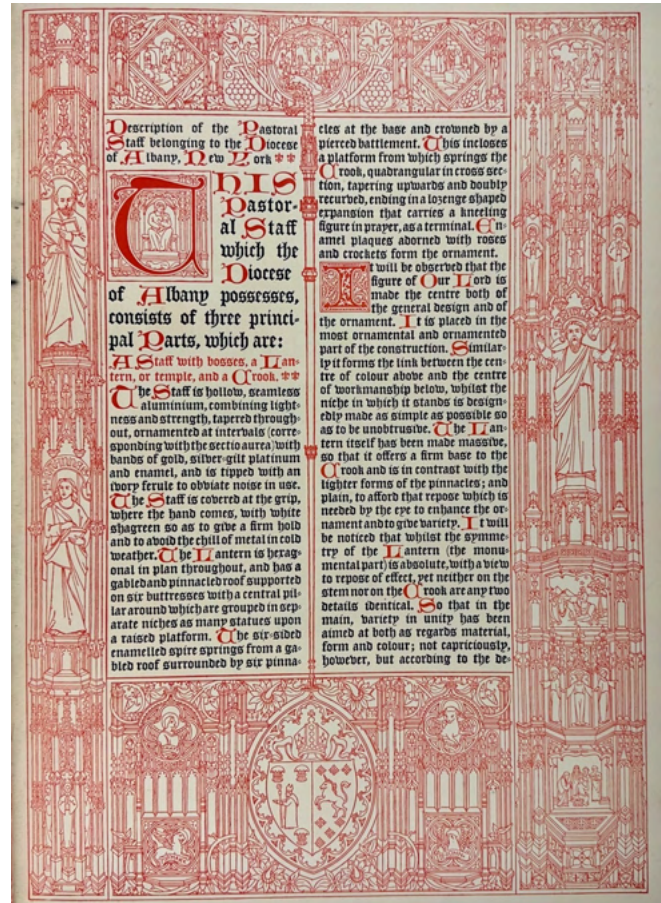 Description of the Pastoral
Staff belonging to the Diocese
of Albany, New York
THIS
Pastor-
al Staff
which the
Diocese
of Albany possesses,
consists of three princi-
pal Parts, which are:
A Staff with bosses, a Lan-
tern, or temple, and a Crook.
The Staff is hollow, seamless
aluminium, combining light-
ness and strength, tapered through-
out, ornamented at intervals (corre-
sponding with the sectio aurea) with
bands of gold, silver-gilt platinum
and enamel, and is tipped with an
ivory ferule to obviate noise in use.
The Staff is covered at the grip,
where the hand comes, with white
shagreen so as to give a firm hold
and to avoid the chill of metal in cold
weather. The Lantern is hexag-
onal in plan throughout, and has a
gabled and pinnacled roof supported
on six buttresses with a central pil-
lar around which are grouped in sep-
arate niches as many statues upon
a raised platform. The six-sided
enamelled spire springs from a ga-
bled roof surrounded by six pinna-
cles at the base and crowned by a
pierced battlement. This incloses
a platform from which springs the
Crook, quadrangular in cross sec-
tion, tapering upwards and doubly
recurved, ending in a lozenge shaped
expansion that carries a kneeling
figure in prayer, as a terminal. En-
amel plaques adorned with roses
and crockets form the ornament.
It will be observed that the
figure of Our Lord is
made the centre both of
the general design and of
the ornament. It is placed in the
most ornamental and ornamented
part of the construction. Similar-
ly it forms the link between the cen-
tre of colour above and the centre
of workmanship below, whilst the
niche in which it stands is design-
edly made as simple as possible so
as to be unobtrusive. The Lan-
tern itself has been made massive,
so that it offers a firm base to the
Crook and is in contrast with the
lighter forms of the pinnacles; and
plain, to afford that repose which is
needed by the eye to enhance the or-
nament and to give variety. It will
be noticed that whilst the symme-
try of the Lantern (the monu-
mental part) is absolute, with a view
to repose of effect, yet neither on the
stem nor on the Crook are any two
details identical. So that in the
main, variety in unity has been
aimed at both as regards material,
form and colour; not capriciously,
however, but according to the de-